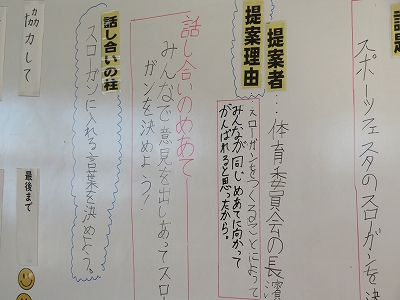 議題
スポーツフェスタのスローガンを決
提案者…体育委員会の長
提案理由
スローガンをつくることによって
みんなが同じめあてに向かって
がんばれると思ったから。
話し合いのめあて
みんなで意見を出しあってスロー
ガンを決めよう!
話し合いの柱
スローガンに入れる言葉を決めよう。
協力して
最後まで